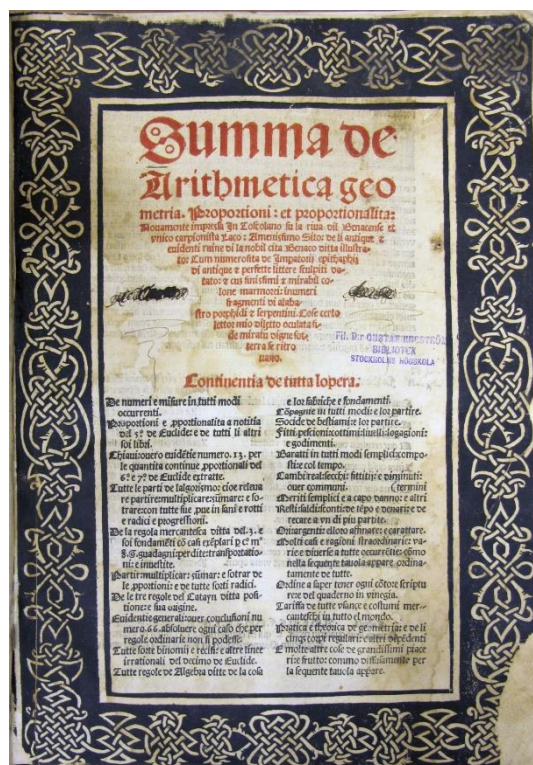 Summa de
Arithmetica geo
metria. Proportioni: et proportionalita:
Nouamente impressa In Toscolano su la riua dil Benacense et
vnico carpionista Laco: Amenissimo Sito: de li antique &
euidenti ruine di la nobil cita Benaco ditta illustra-
to: Cum numerosita de Imperatorij epithaphij
di antique e perfette littere sculpiti do-
tato: & cus finissimi & mirabil co-
lone marmorei: inumeri
fragmenti di alaba-
stro porphidi & serpentini. Cose certo
lettor mio diletto oculata fi-
de miratu digne sot-
terra se ritro
uano.
Fil. D:r GUSTAF ENESTRÖM
BIBLIOTEK
STOCKHOLMS HÖGSKOLA
Continentia de tutta lopera.
De numeri e misure in tutti modi
occurrenti.
Proportioni e ꝓportionalita a notitia
del 5º de Euclide: e de tutti li altri
soi libri.
Chiaui: ouero euidētie numero .13. per
le quantita continue ꝓportionali del
6º e 7º de Euclide extratte.
Tutte le parti de lalgorismo: cioe releua
re partire: multiplicare: sūmare: e so-
trare: con tutte sue ꝓue in sani e rotti
e radici e progressioni.
De la regola mercantesca ditta del .3. e
soi fondamēti cō casi exēplari ꝑ cºmº
guadagni: perdite: transportatio-
ni: e inuestite.
Partir: multiplicar: sūmar: e sotrar de
le ꝓportioni: e de tutte sorti radici.
De le tre regole del Catayn ditta posi-
tione: e sua origine.
Euidentie generali: ouer conclusioni nu
mero .66. absoluere ogni caso che per
regole ordinarie non si podesse.
Tutte sorte binomij e recisi: e altre linee
irrationali del decimo de Euclide.
Tutte regole de Algebra ditte de la cosa
e lor fabriche e fondamenti.
Cōpagnie in tutti modi: e lor partire.
Socide de bestiami: e lor partire.
Fitti: pescioni: cottimi: liuelli: logagioni:
e godimenti.
Baratti in tutti modi semplici: compo-
sti: e col tempo.
Cambi reali: secchi: fittitij: e diminuti:
ouer communi.
Meriti semplici e a capo danno: e altri termini
Resti: saldi: sconti: de tēpo e denari: e de
recare a vn di piu partite.
Ori: argenti: e lloro affinare: e carattare.
Molti casi e ragioni straordinarie: va-
rie e diuerse a tutte occurrētie: cōmo
nella sequente tauola appare ordina-
tamente de tutte.
Ordine a saper tener ogni cōto: e scriptu
re: e del quaderno in vinegia.
Tariffa de tutte vsance e costumi mer-
canteschi in tutto el mondo.
Pratica e theorica de geometria: e de li
cinque corpi regulari: e altri dēpēdenti
E molte altre cose de grandissimi piace
ri: e frutto: commo diffusamente per
la sequente tauola appare.